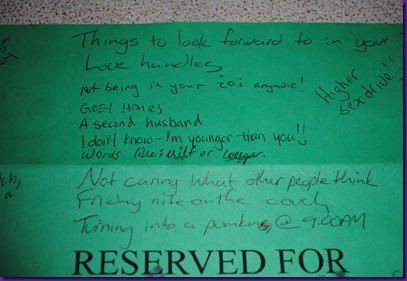 Things to look forward to in your
Love handles
Not being in your 20s anymore!
Higher
sex drive!!
GREY HAIRS
A second husband
I don't know - I'm younger than you!!
Words like: MILF or cougar.
Not caring what other people think
Friday nite on the couch
Turning into a pumking @ 9:00AM
RESERVED FOR